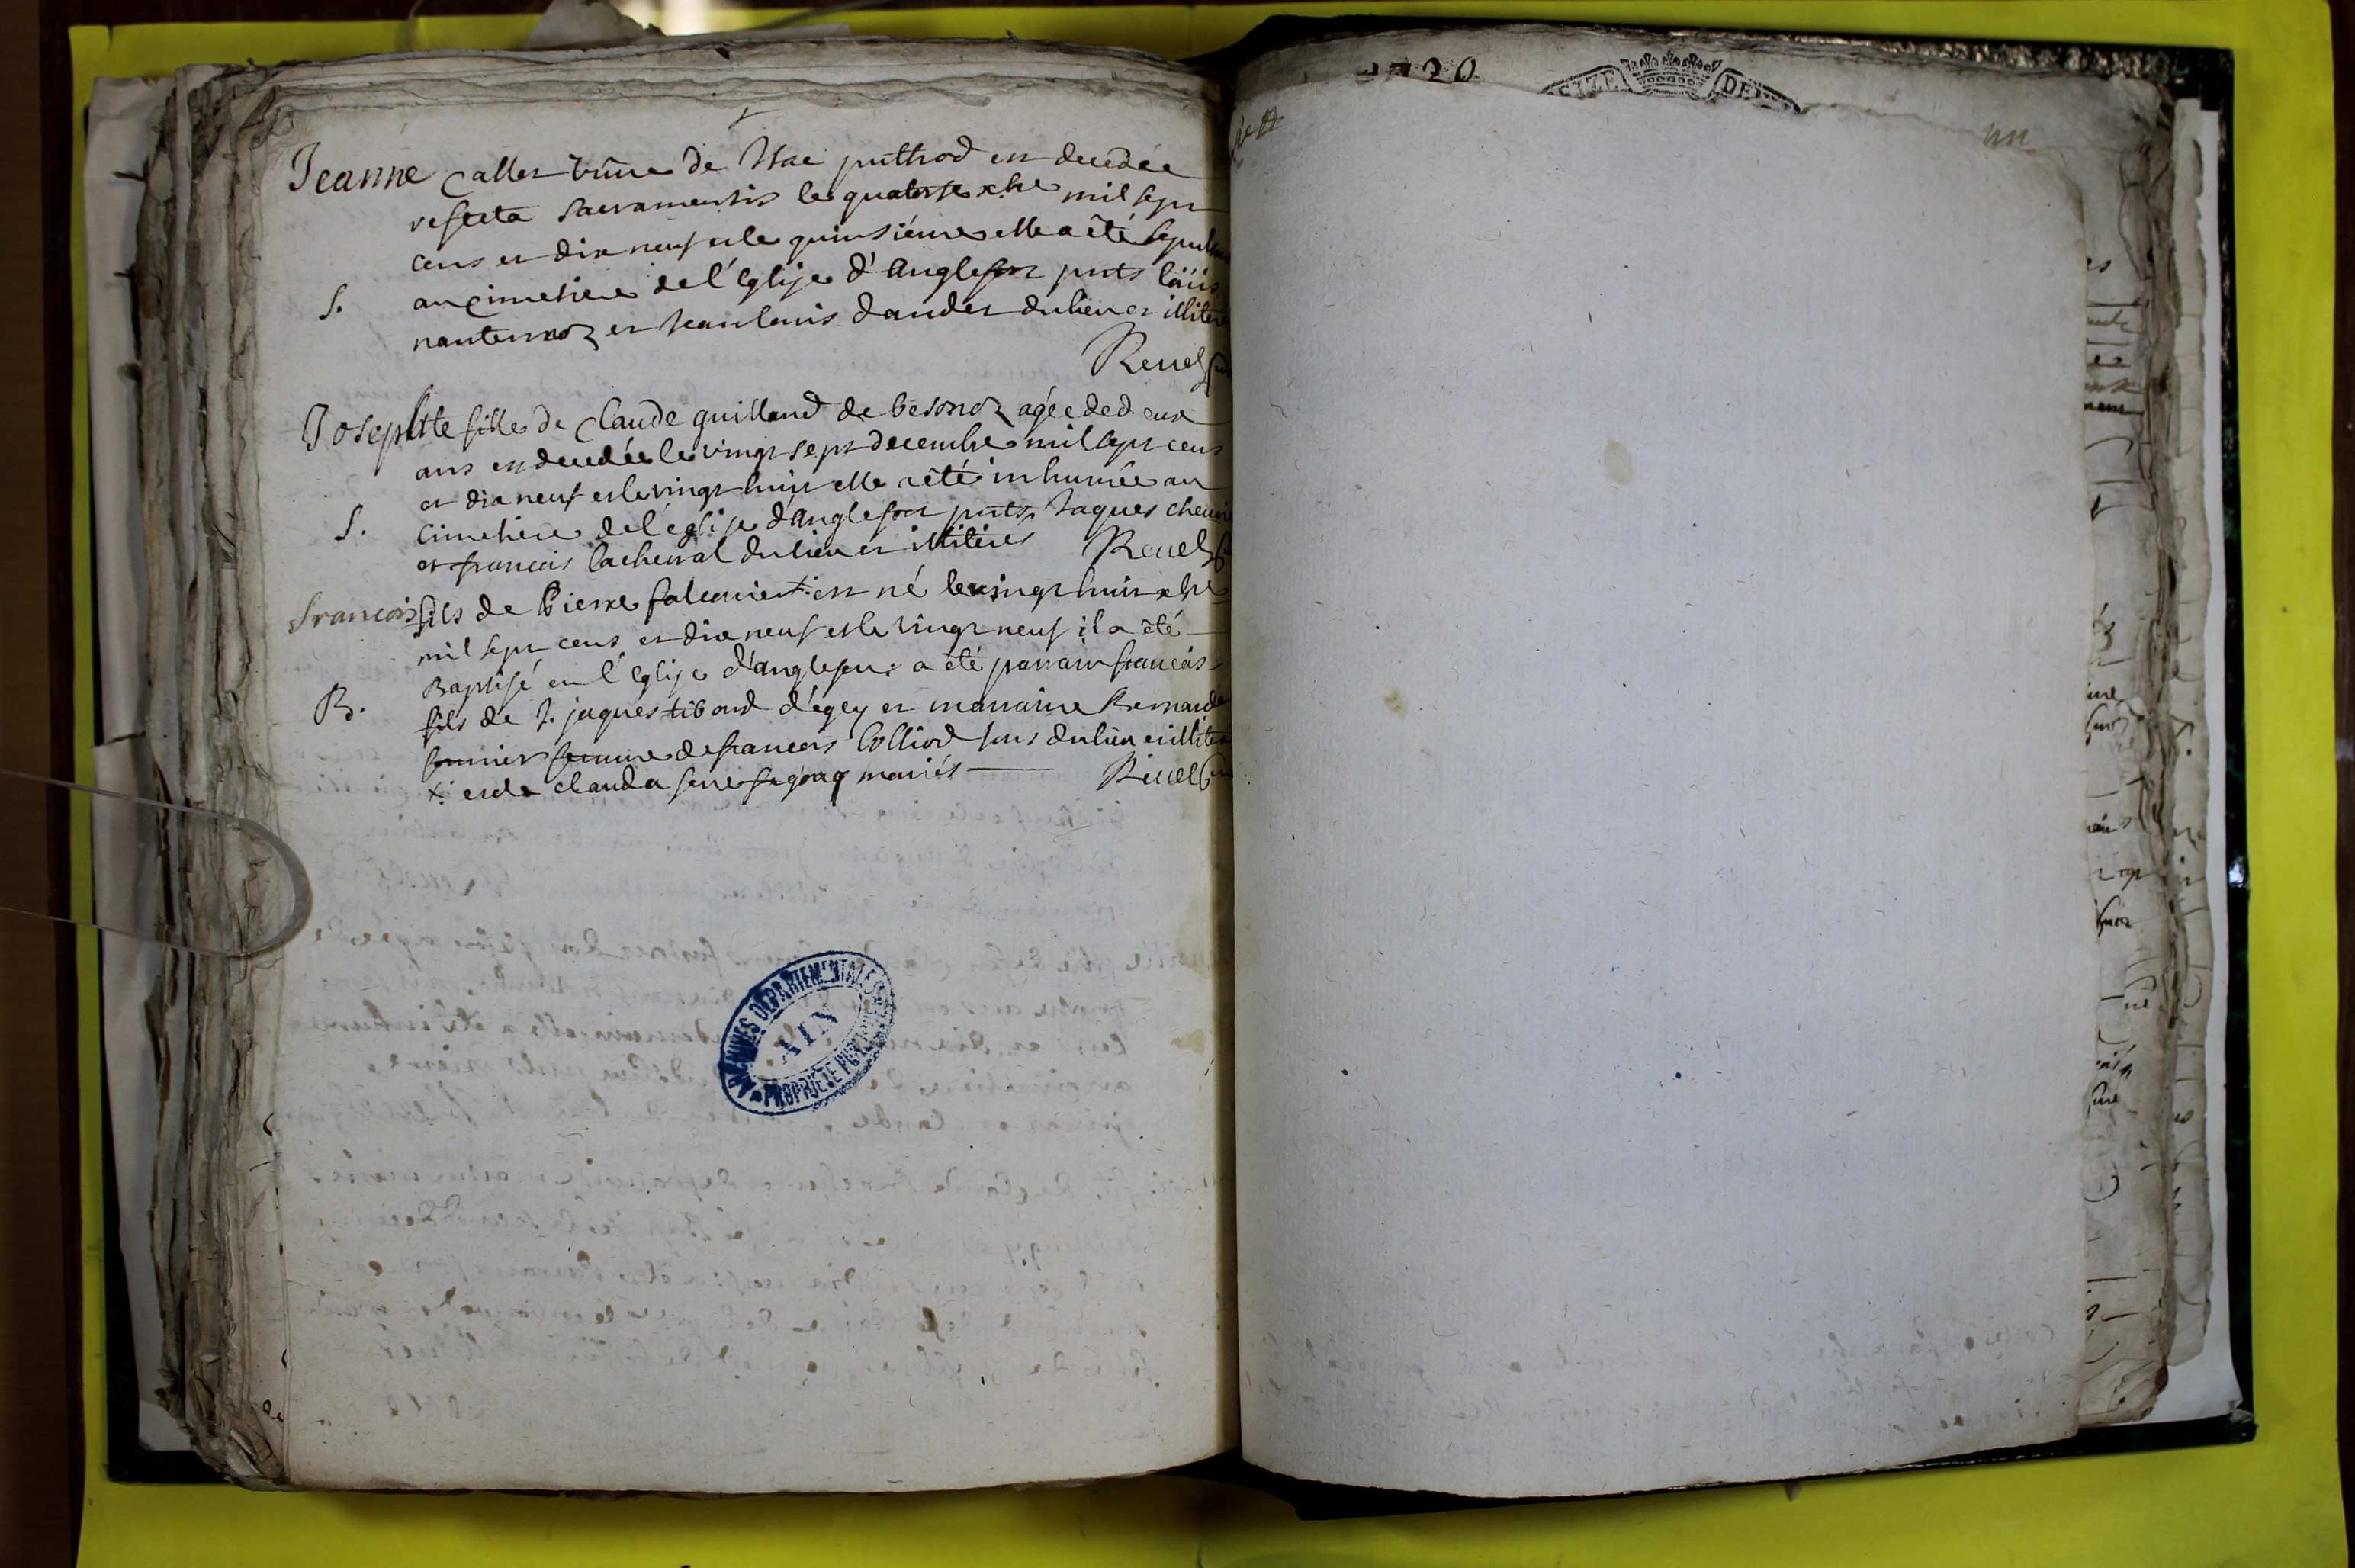 Jeanne Caller vefve de Isac puthod est decedée
refecta sacramentis le quatorse xbre mil sept
cens et dix neuf et le quinsiéme elle a été
S. au cimetiere de l'Eglise d'Anglefort pnts
nanternoz et Jean louis dander du lieu et
Reuel
Josephte fille de Claude guilland de besonoz agée de deux
ans est decedée le vingt sept decembre mil sept cens
et dix neuf et le vingt huit elle a été inhumée au
S. cimetiere de l'eglise d'Anglefort pnts Jaques
et francois lacheual du lieu et illiterés Reuel
francois fils de Pierre falconier + est né le vingt huit xbre
mil sept cens et dix neuf et le vingt neuf il a été
Baptisé en l'Eglise d'anglefort a été parrain francois
B. fils de J. jaques tibond d'égey et marraine Bernarde
fornier femme de francois Colliod tous du lieu et
+ et de clauda mariés Reuel
1720
SEIZE DE
ARCHIVES DÉPARTEMENTALES
AIN
PROPRIÉTÉ PUBLIQUE